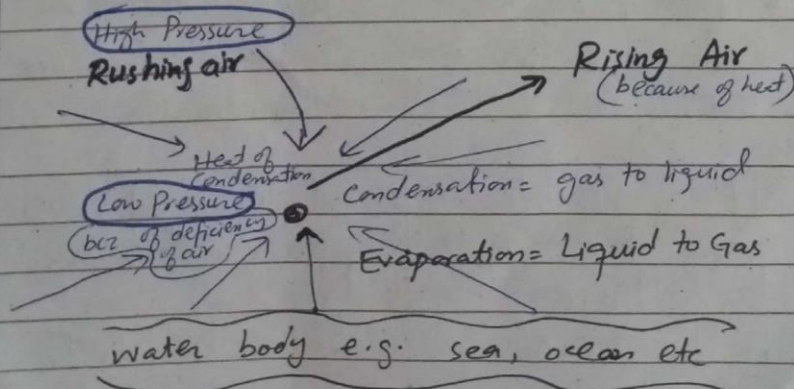 High Pressure
Rushing air
Rising Air
(because of heat)
Heat of
Condensation
Condensation = gas to liquid
Low Pressure
(bcz of deficiency
of air)
Evaporation = Liquid to Gas
water body e.g. sea, ocean etc